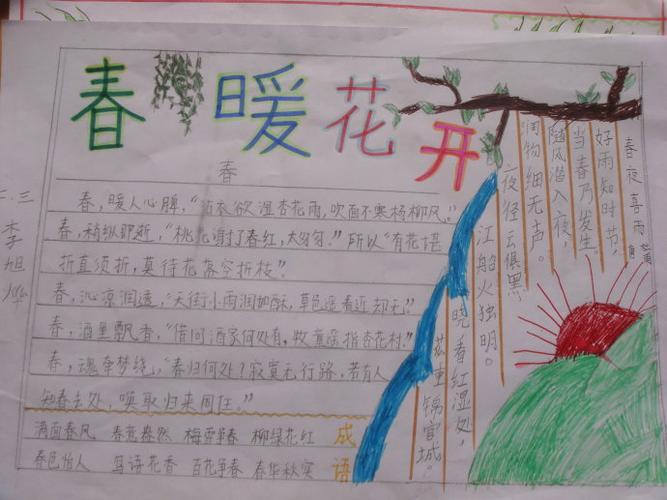 春暖花开
二.三 李旭烨
春
春，暖人心脾，“沾衣欲湿杏花雨，吹面不寒杨柳风。”
春，稍纵即逝，“桃花谢了春红，太匆匆。”所以“有花堪
折直须折，莫待花落空折枝”。
春，沁凉润透，“天街小雨润如酥，草色遥看近却无”
春，酒里飘香，“借问酒家何处有，牧童遥指杏花村。”
春，魂牵梦绕，“春归何处？寂寞无行路，若有人
知春去处，唤取归来同住。”
满面春风 春意盎然 梅雪争春 柳绿花红
春色怡人 鸟语花香 百花争春 春华秋实
成语
春夜喜雨
好雨知时节，
当春乃发生。
随风潜入夜，
润物细无声。
夜径云俱黑，
江船火独明。
晓看红湿处，
花重锦官城。